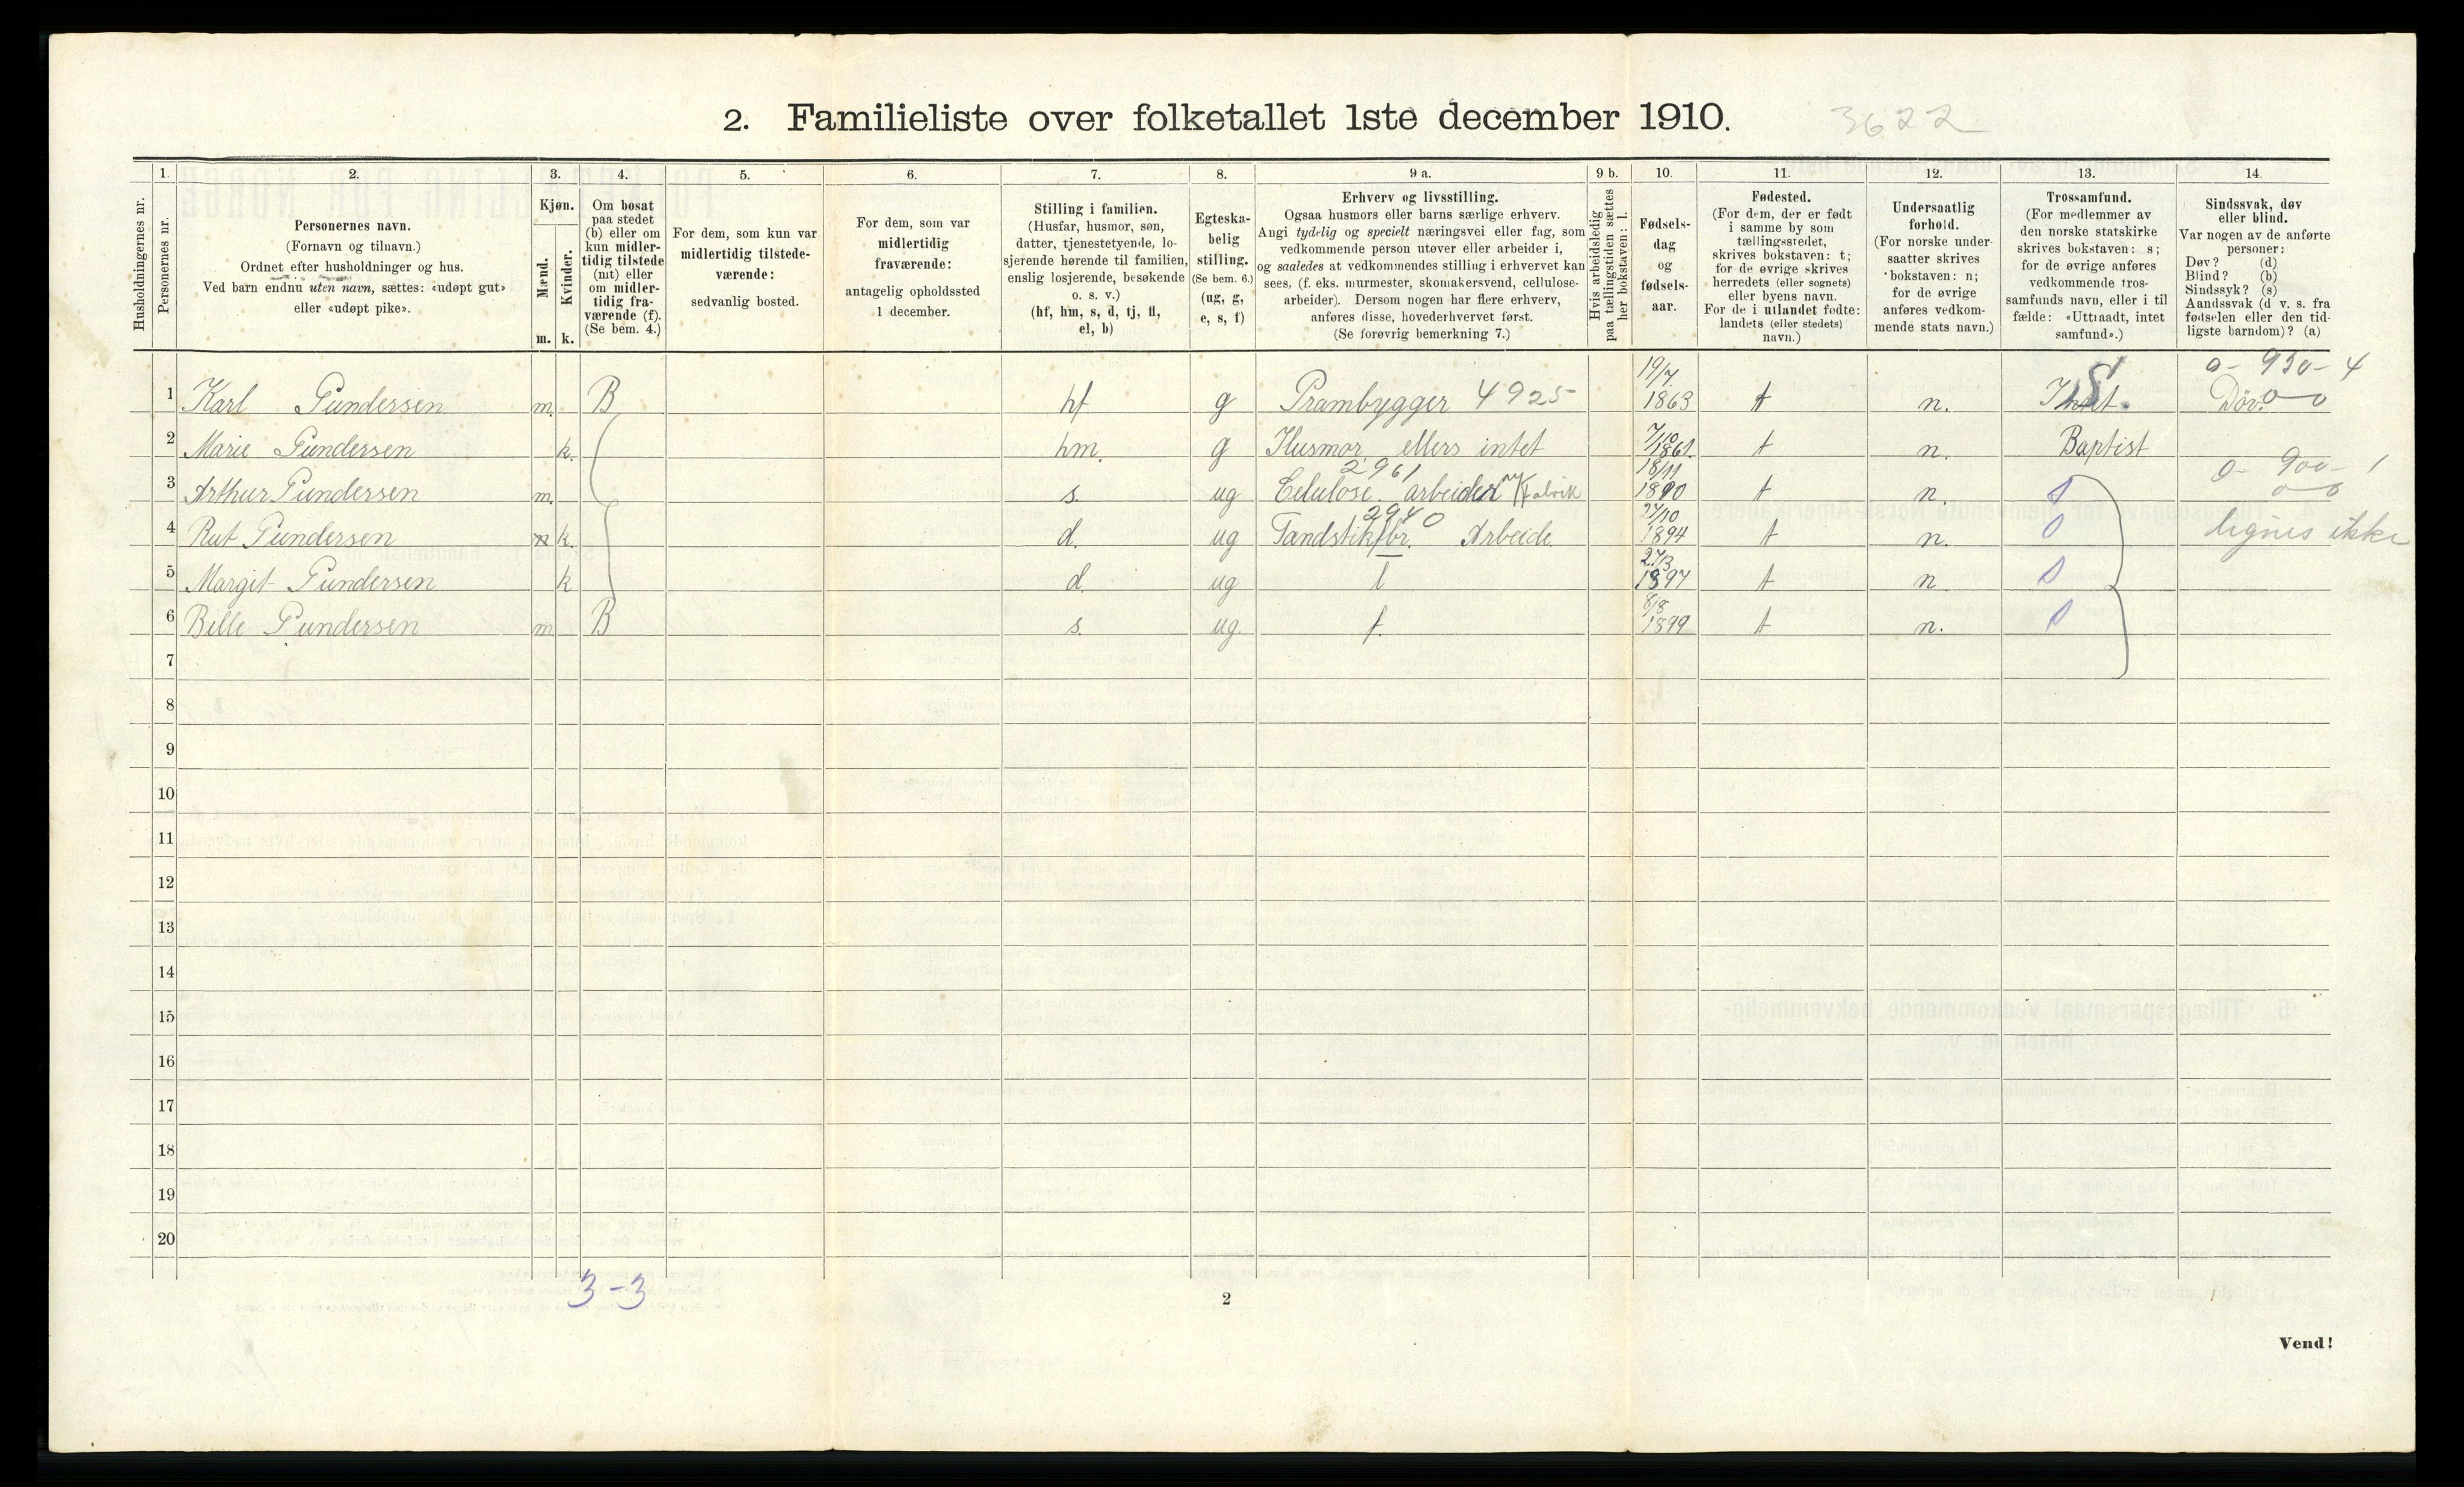 2. Familieliste over folketallet 1ste december 1910.
3622
Husholdningernes nr.
1.
Personernes nr.
2.
Personernes navn.
(Fornavn og tilnavn.)
Ordnet efter husholdninger og hus.
Ved barn endnu uten navn, sættes: «udøpt gut»
eller «udøpt pike».
3.
Kjøn.
Mænd.
Kvinder.
m. k.
4.
Om bosat
paa stedet
(b) eller om
kun midler-
tidig tilstede
(mt) eller
om midler-
tidig fra-
værende (f).
(Se bem. 4.)
5.
For dem, som kun var
midlertidig tilstede-
værende:
sedvanlig bosted.
6.
For dem, som var
midlertidig
fraværende:
antagelig opholdssted
1 december.
7.
Stilling i familien.
(Husfar, husmor, søn,
datter, tjenestetyende, lo-
sjerende hørende til familien,
enslig losjerende, besøkende
o. s. v.)
(hf, hm, s, d, tj, fl,
el, b)
8.
Egteska-
belig
stilling.
(Se bem. 6.)
(ug, g,
e, s, f)
9 a.
Erhverv og livsstilling.
Ogsaa husmors eller barns særlige erhverv.
Angi tydelig og specielt næringsvei eller fag, som
vedkommende person utøver eller arbeider i,
og saaledes at vedkommendes stilling i erhvervet kan
sees, (f. eks. murmester, skomakersvend, cellulose-
arbeider). Dersom nogen har flere erhverv,
anføres disse, hovederhvervet først.
(Se forøvrig bemerkning 7.)
9 b.
Hvis arbeidsledig
paa tællingstiden sættes
her bokstaven: l.
10.
Fødsels-
dag
og
fødsels-
aar.
11.
Fødested.
(For dem, der er født
i samme by som
tællingsstedet,
skrives bokstaven: t;
for de øvrige skrives
herredets (eller sognets)
eller byens navn.
For de i utlandet fødte:
landets (eller stedets)
navn.)
12.
Undersaatlig
forhold.
(For norske under-
saatter skrives
bokstaven: n;
for de øvrige
anføres vedkom-
mende stats navn.)
13.
Trossamfund.
(For medlemmer av
den norske statskirke
skrives bokstaven: s;
for de øvrige anføres
vedkommende tros-
samfunds navn, eller i til
fælde: «Uttraadt, intet
samfund».)
14.
Sindssvak, døv
eller blind.
Var nogen av de anførte
personer:
Døv? (d)
Blind? (b)
Sindssyk? (s)
Aandssvak (d v. s. fra
fødselen eller den tid-
ligste barndom)? (a)
1 Karl Gundersen m. B hf g Prambygger 4925 19/7. 1863 t n. S Døv.
2 Marie Gundersen k. hm. g Husmor ellers intet 7/10 1861. t n. Baptist
3 Arthur Gundersen m. s. ug Celulose. arbeider 2961 18/11 1890 t n. s
4 Rut Gundersen k. d. ug Tandstikfbr. Arbeide 2940 27/10 1894 t n. s lignes ikke
5 Margit Gundersen k d. ug 27/3 1897 t n. s
6 Bille Gundersen m B s. ug. 8/8 1899 t n. s
7
8
9
10
11
12
13
14
15
16
17
18
19
20
3-3
2
Vend!